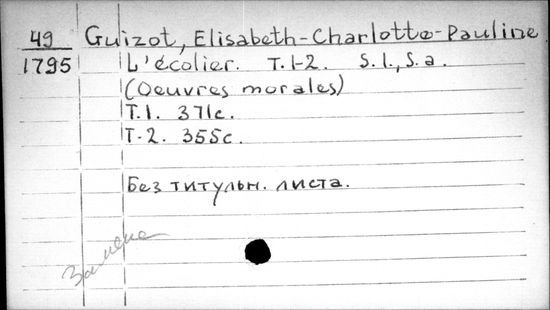 49 Guizot, Elisabeth-Charlotte-Pauline
1795 L'écolier. T.1-2. S.l., S.a.
(Oeuvres morales)
T.1. 371c.
T.2. 355c.
Без титульн. листа.
Замена